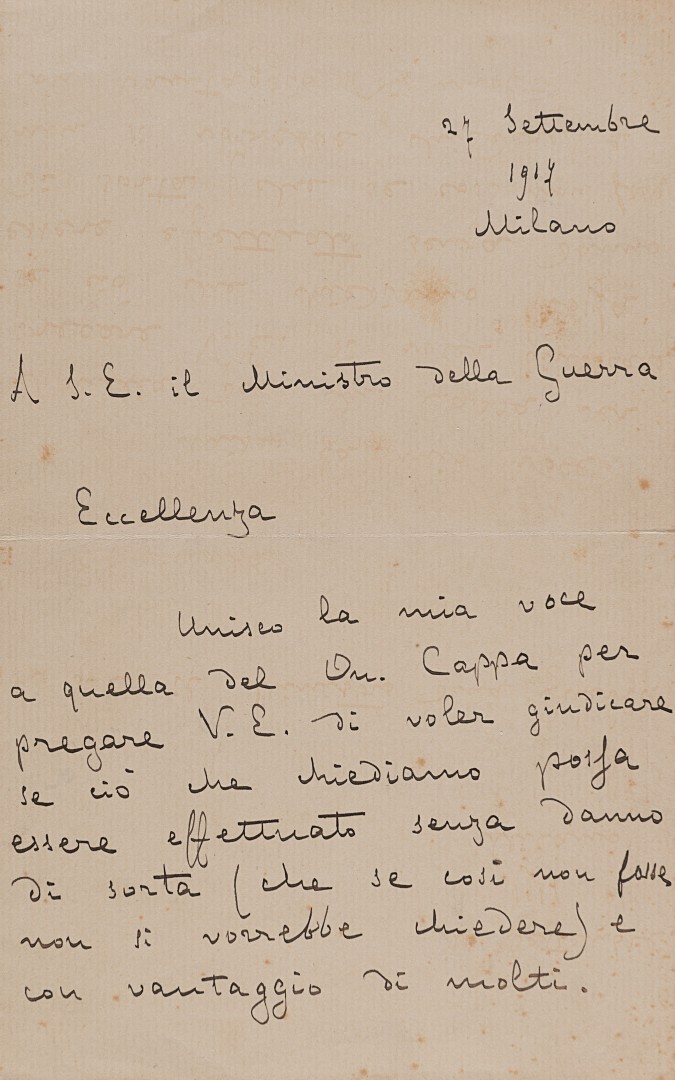 27 Settembre
1917
Milano
A S.E. il Ministro della Guerra
Eccellenza
Unisco la mia voce
a quella del On. Cappa per
pregare V.E. di voler giudicare
se ciò che chiediamo possa
essere effettuato senza danno
di sorta (che se così non fosse
non si vorrebbe chiedere) e
con vantaggio di molti.